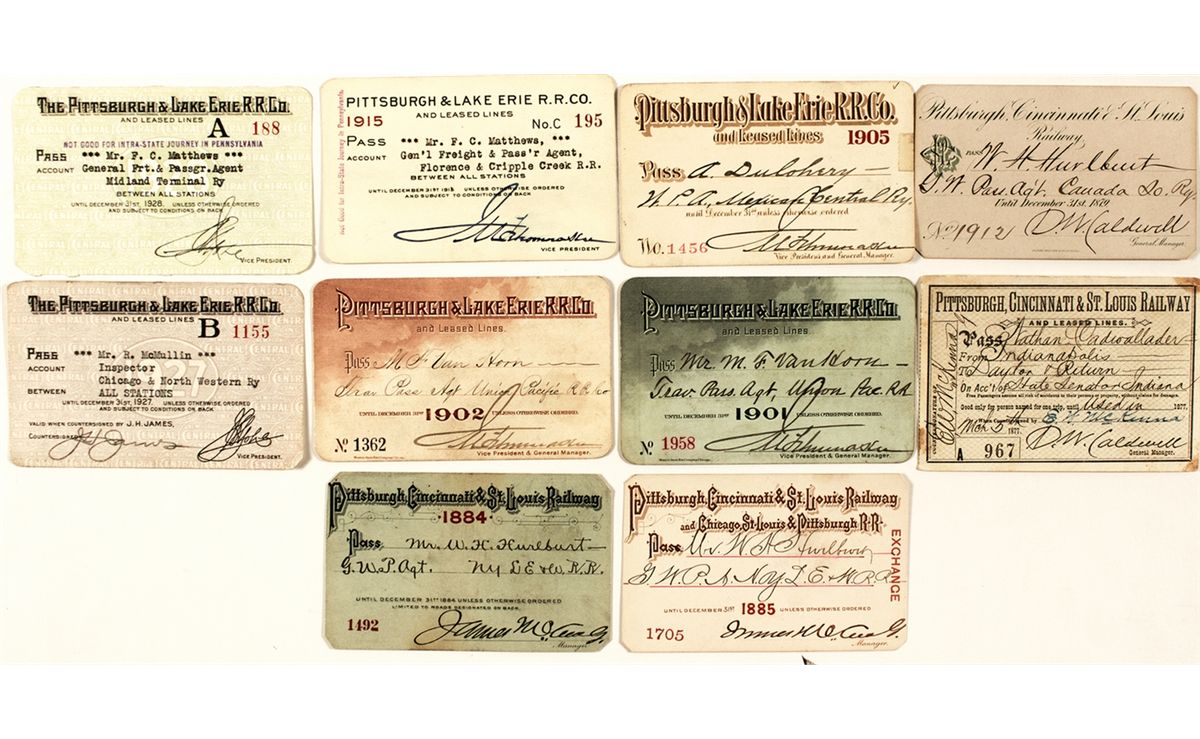 THE PITTSBURGH & LAKE ERIE R.R.CO.
AND LEASED LINES
A 188
NOT GOOD FOR INTRA-STATE JOURNEY IN PENNSYLVANIA
PASS *** Mr. F. C. Matthews ***
ACCOUNT General Frt.& Passgr.Agent
Midland Terminal Ry
BETWEEN ALL STATIONS
UNTIL DECEMBER 31ST, 1928. UNLESS OTHERWISE ORDERED
AND SUBJECT TO CONDITIONS ON BACK
VICE PRESIDENT.
PITTSBURGH & LAKE ERIE R.R.CO.
1915 AND LEASED LINES
No.C 195
Not Good for Intra-State Journey in Pennsylvania.
PASS *** Mr. F. C. Matthews, ***
ACCOUNT Gen'l Freight & Pass'r Agent,
Florence & Cripple Creek R.R.
BETWEEN ALL STATIONS
UNTIL DECEMBER 31ST 1915 UNLESS OTHERWISE ORDERED
AND SUBJECT TO CONDITIONS ON BACK
VICE PRESIDENT
Pittsburgh & Lake Erie R.R.Co.
and Leased Lines. 1905
Pass A. Dulohery
W. P. A, Mexican Central Ry.
until December 31st unless otherwise ordered
No. 1456
Vice President and General Manager.
Pittsburgh, Cincinnati & St. Louis
Railway,
PASS W. H. Hurlburt
G. W. Pass. Agt. Canada So. Ry
Until December 31st. 1879
No 1912 D. W. Caldwell
General Manager.
THE PITTSBURGH & LAKE ERIE R.R.CO.
AND LEASED LINES
B 1155
PASS *** Mr. R. McMullin ***
ACCOUNT Inspector
Chicago & North Western Ry
BETWEEN ALL STATIONS
UNTIL DECEMBER 31ST, 1927. UNLESS OTHERWISE ORDERED
AND SUBJECT TO CONDITIONS ON BACK
VALID WHEN COUNTERSIGNED BY J.H. JAMES,
COUNTERSIGNED
VICE PRESIDENT.
PITTSBURGH & LAKE ERIE R.R.CO.
and Leased Lines.
Pass M. F. Van Horn
Trav Pass Agt Union Pacific R.R.Co
UNTIL DECEMBER 31ST 1902 UNLESS OTHERWISE ORDERED.
No 1362
Vice President & General Manager.
PITTSBURGH & LAKE ERIE R.R.CO.
and Leased Lines.
Pass Mr. M. F. Van Horn
Trav. Pass. Agt, Union Pac. R.R.
UNTIL DECEMBER 31ST 1901 UNLESS OTHERWISE ORDERED.
No 1958
Vice President & General Manager.
PITTSBURGH, CINCINNATI & ST. LOUIS RAILWAY
AND LEASED LINES.
Pass Nathan Cadwallader
From Indianapolis
To Dayton & Return
On Acc't of State Senator Indiana
Free Passengers assume all risk of accidents to their persons or property, without claims for damages.
Good only for person named for one trip, until Used in 1877.
When Countersigned by E. W. McKenna
Mch 5th 1877.
A 967 D. W. Caldwell
General Manager.
Pittsburgh, Cincinnati & St. Louis Railway
1884
Pass Mr. W. H. Hurlburt
G. W. P. Agt. NY L E & W. R.R.
UNTIL DECEMBER 31ST 1884 UNLESS OTHERWISE ORDERED
LIMITED TO ROADS DESIGNATED ON BACK.
1492
Manager.
Pittsburgh, Cincinnati & St. Louis Railway
and Chicago, St. Louis & Pittsburgh R.R.
EXCHANGE
Pass Mr. W. H. Hurlburt
G W P A N.Y L. E. & W R R
UNTIL DECEMBER 31ST 1885 UNLESS OTHERWISE ORDERED
1705
Manager.